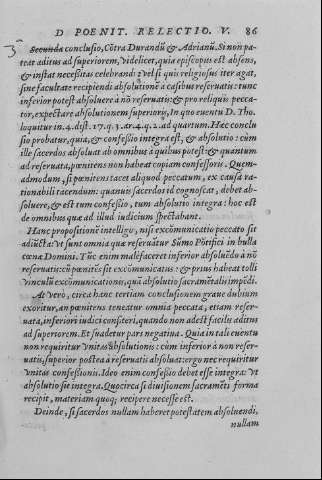 D POENIT. RELECTIO V. 86
3
Secunda conclusio, Cõtra Durandũ & Adrianũ. Si non pa-
teat aditus ad superiorem, videlicet, quia episcopus est absens,
& instat necessitas celebrandi: vel si quis religiosus iter agat,
sine facultate recipiendi absolutionẽ à casibus reseruatis: tunc
inferior potest absoluere à nõ reseruatis: & pro reliquis pecca-
tor, expectare absolutionem superioris. In quo euentu D. Tho.
loquitur in .4. dist. 17. q. 3. ar. 4. q. 2. ad quartum. Hæc conclu
sio probatur, quia, & confessio integra est, & absolutio: cùm
ille sacerdos absoluat ab omnibus à quibus potest: & quantum
ad reseruata, pœnitens non habeat copiam confessoris. Quem-
admodum, si pœnitens tacet aliquod peccatum, ex causa ra-
tionabili tacendum: quamuis sacerdos id cognoscat, debet ab-
soluere, & est tum confessio, tum absolutio integra: hoc est
de omnibus quæ ad illud iudicium spectabant.
Hanc propositionẽ intelligo, nisi excõmunicatio peccato sit
adiũcta: vt sunt omnia quæ reseruãtur Sũmo Põtifici in bulla
cœna Domini. Tũc enim malefaceret inferior absoluẽdo à nõ
reseruatis: cũ pœnitẽs sit excõmunicatus: & prius habeat tolli
vinculũ excõmunicationis, quã absolutio sacramẽtalis impẽdi.
At vero, circa hanc tertiam conclusionem graue dubium
exoritur, an pœnitens teneatur omnia peccata, etiam reser-
uata, inferiori iudici confiteri, quando non adest facilis aditus
ad superiorem. Et suadetur pars negatiua. Quia in tali euentu
non requiritur vnitas absolutionis: cùm inferior à non reser-
uatis, superior postea à reseruatis absoluat: ergo nec requiritur
vnitas confessionis. Ideo enim confessio debet esse integra: vt
absolutio sit integra. Quocirca si diuisionem sacramẽti forma
recipit, materiam quoq; recipere necesse est.
Deinde, si sacerdos nullam haberet potestatem absoluendi,
nullam